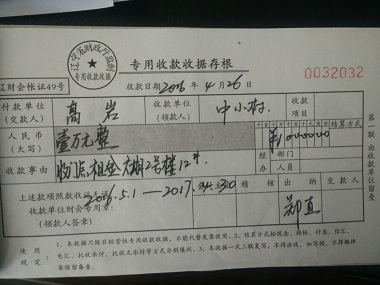 辽宁省财政厅监制
专用收款收据
专用收款收据存根
辽财会帐证49号
收款日期2016年4月26
0032032
付款单位
(交款人)
高岩
收款单位
(领款人)
收款
项目
人民币
(大写)
壹万元整
¥1000000
结算方式
收款事由
2号楼12#
经
办
部门
人员
上述款项照数收讫无误
收款单位财会专用章:
(领款人签章)
2016.5.1—2017.
稽核
出纳
交款人
郑直
第一联 由收款单位留查
使用规定:
1、本收据只做非经营性专用收款收据,不能代替发票使用。2、结算方式按现金、转帐、付委、信汇、
电汇、托收承付、托收无承付等方式分别填列。3、本收据一式三联复写,不得涂改,如写错,不得撕掉
要保留备查。